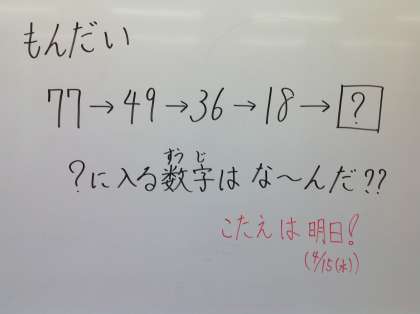 もんだい
77→49→36→18→?
?に入る数字は な〜んだ??
すうじ
こたえは 明日!
(4/15(水))